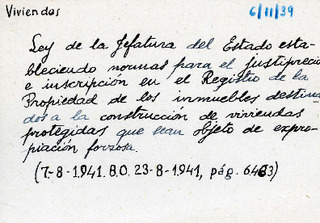 Viviendas
6/11/39
Ley de la Jefatura del Estado esta-
bleciendo normas para el Justiprecio
e inscripción en el Registro de la
Propiedad de los inmuebles destina-
dos a la construcción de viviendas
protegidas que sean objeto de expro-
piación forzosa.
(7-8-1.941. B.O. 23-8-1.941, pág. 6463)